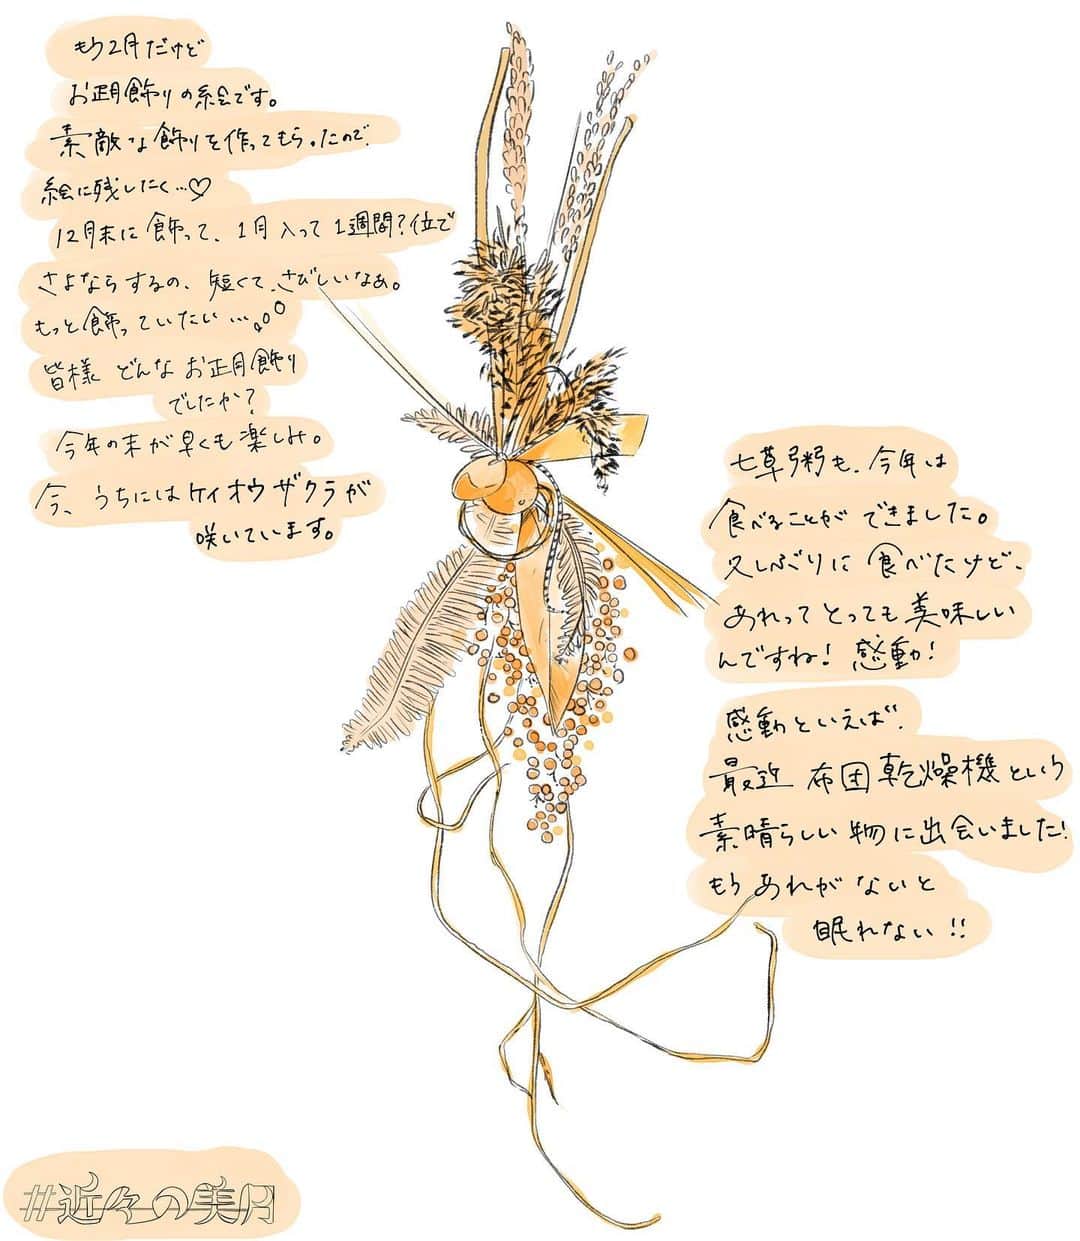 もう2月だけど
お正月飾りの絵です。
素敵な飾りを作ってもらったので、
絵に残したく…♡
12月末に飾って、1月入って1週間?位で
さよならするの、短くて、さびしいなぁ。
もっと飾っていたい…。o○
皆様 どんな お正月飾り
でしたか?
今年の末が早くも楽しみ。
今、うちにはケイオウザクラが
咲いています。
七草粥も、今年は
食べることができました。
久しぶりに食べたけど、
あれってとっても美味しい
んですね!感動!
感動といえば、
最近 布団乾燥機という
素晴らしい物に出会いました!
もうあれがないと
眠れない!!
#近々の美月